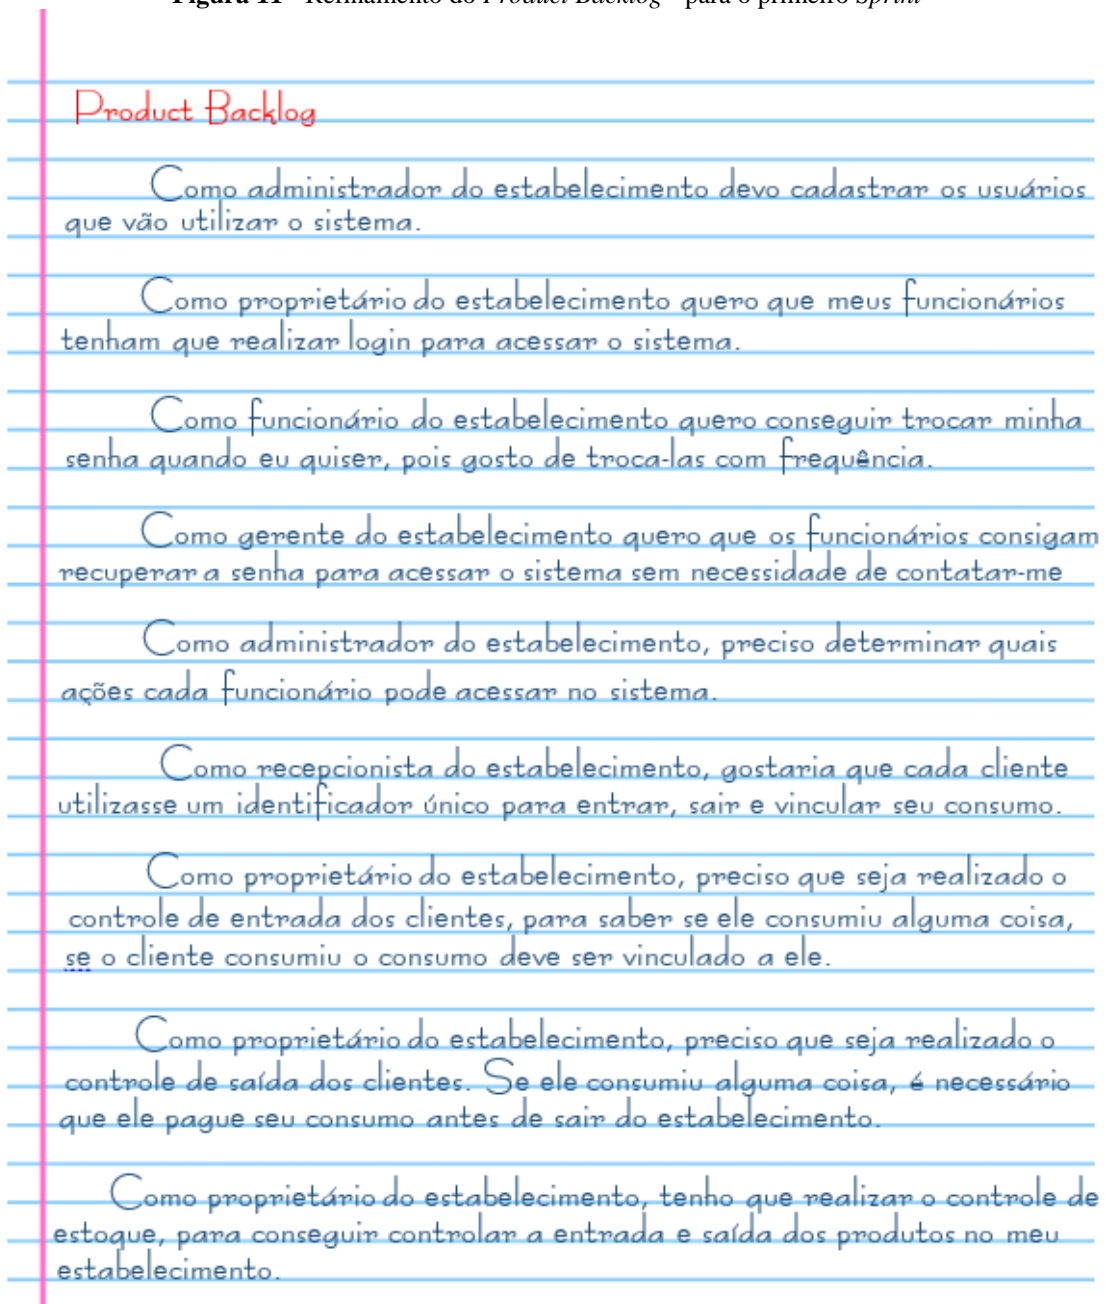 Figura 11 - Refinamento do Product Backlog - para o primeiro Sprint
Product Backlog
Como administrador do estabelecimento devo cadastrar os usuários
que vão utilizar o sistema.
Como proprietário do estabelecimento quero que meus funcionários
tenham que realizar login para acessar o sistema.
Como funcionário do estabelecimento quero conseguir trocar minha
senha quando eu quiser, pois gosto de troca-las com frequência.
Como gerente do estabelecimento quero que os funcionários consigam
recuperar a senha para acessar o sistema sem necessidade de contatar-me
Como administrador do estabelecimento, preciso determinar quais
ações cada funcionário pode acessar no sistema.
Como recepcionista do estabelecimento, gostaria que cada cliente
utilizasse um identificador único para entrar, sair e vincular seu consumo.
Como proprietário do estabelecimento, preciso que seja realizado o
controle de entrada dos clientes, para saber se ele consumiu alguma coisa,
se o cliente consumiu o consumo deve ser vinculado a ele.
Como proprietário do estabelecimento, preciso que seja realizado o
controle de saída dos clientes. Se ele consumiu alguma coisa, é necessário
que ele pague seu consumo antes de sair do estabelecimento.
Como proprietário do estabelecimento, tenho que realizar o controle de
estoque, para conseguir controlar a entrada e saída dos produtos no meu
estabelecimento.